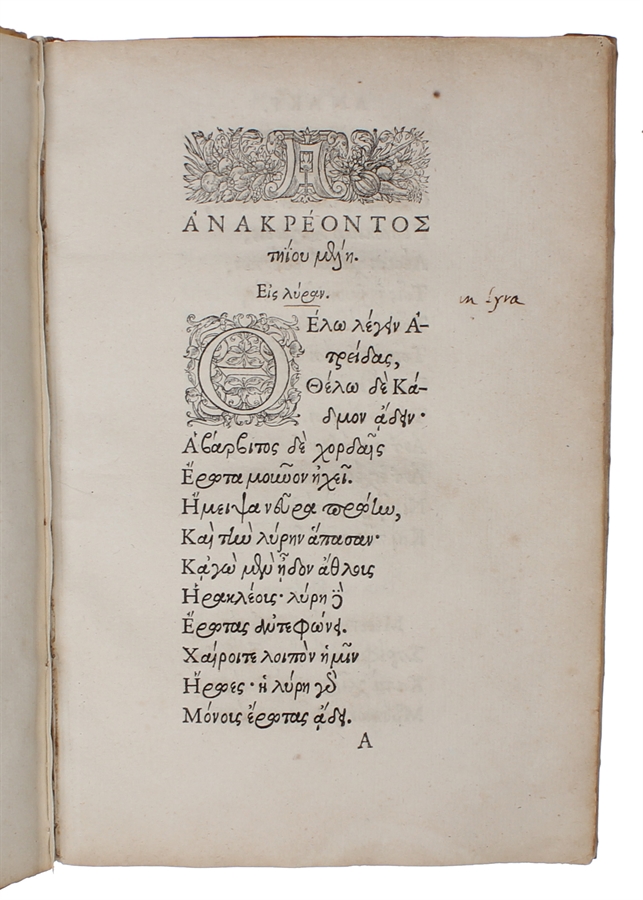 ἈΝΑΚΡΈΟΝΤΟΣ
τηΐου μέλη.
Εἰς λύραν.
Θέλω λέγειν Ἀ-
τρείδας,
Θέλω δὲ Κά-
δμον ᾄδειν·
Ἁ βάρβιτος δὲ χορδαῖς
Ἔρωτα μοῦνον ἠχεῖ.
Ἤμειψα νεῦρα πρώην,
Καὶ τὴν λύρην ἅπασαν·
Κᾀγὼ μὲν ᾖδον ἄθλοις
Ἡρακλέοις· λύρη δὲ
Ἔρωτας ἀντεφώνει.
Χαίροιτε λοιπὸν ἡμῖν
Ἥρωες· ἡ λύρη γὰρ
Μόνοις ἔρωτας ᾄδει.
A